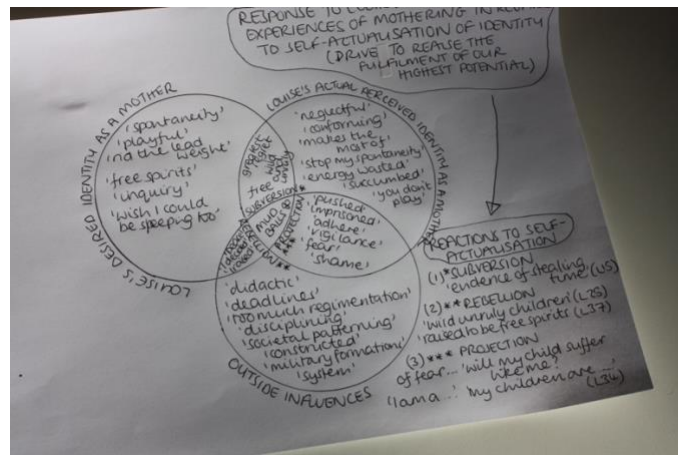 RESPONSE TO
EXPERIENCES OF MOTHERING IN
TO SELF-ACTUALISATION OF IDENTITY
(DRIVE TO REALISE THE
FULFILMENT OF OUR
HIGHEST POTENTIAL)
LOUISE'S DESIRED IDENTITY AS A MOTHER
'spontaneity'
'playful'
lead
weight'
'free spirits'
'inquiry'
'wish I could
be
too'
LOUISE'S ACTUAL PERCEIVED IDENTITY AS A MOTHER
'neglectful'
'conforming'
'makes the
most of'
'stop my spontaneity'
'energy wasted'
'succumbed'
'you don't
play'
wild
and
unruly
free
SUBVERSION *
MUD
BALLS
PROJECTION
***
REBELLION **
'pushed'
'imprisoned'
'adhere'
'vigilance'
'fear'
'shame'
'didactic'
'deadlines'
'too much regimentation'
'disciplining'
'societal patterning'
'constructed'
'military formation'
'system'
OUTSIDE INFLUENCES
REACTIONS TO SELF-
ACTUALISATION
(1) * SUBVERSION
'evidence of stealing
time'
(2) ** REBELLION
'wild unruly children'
'raised to be free spirits' (L37)
(3) *** PROJECTION
of fear... 'will my child suffer
like me?'
'I am a...' 'my children are ...'
(L34)